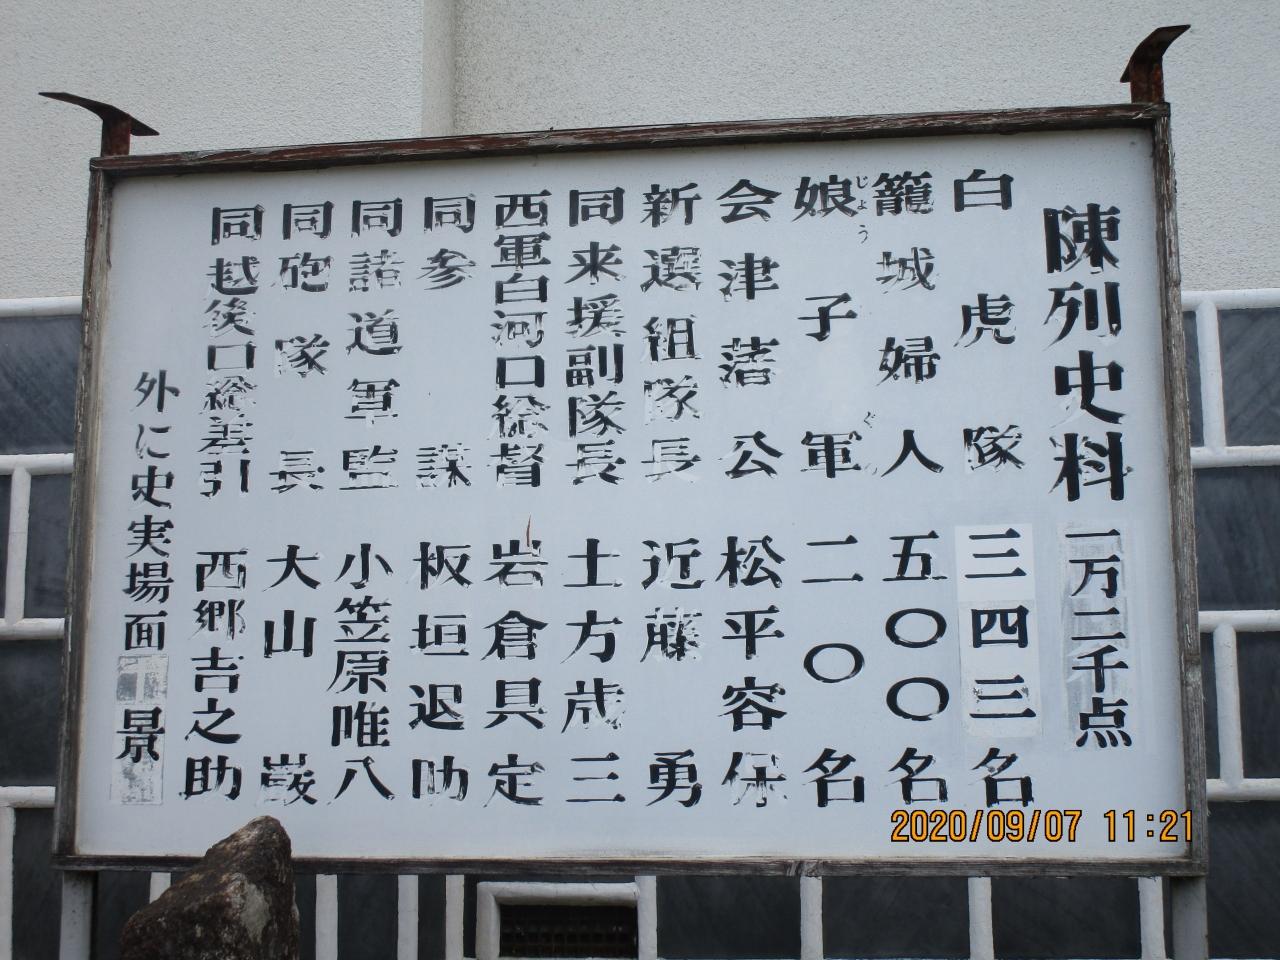 陳列史料 一万二千点
白虎隊 三四三名
籠城婦人 五〇〇名
娘子軍 二〇名
じょう ぐん
会津藩公 松平容保
新選組隊長 近藤勇
同来援副隊長 土方歳三
西軍白河口総督 岩倉具定
同参謀 板垣退助
同諸道軍監 小笠原唯八
同砲隊長 大山巌
同越後口総差引 西郷吉之助
外に史実場面 景
2020/09/07 11:21